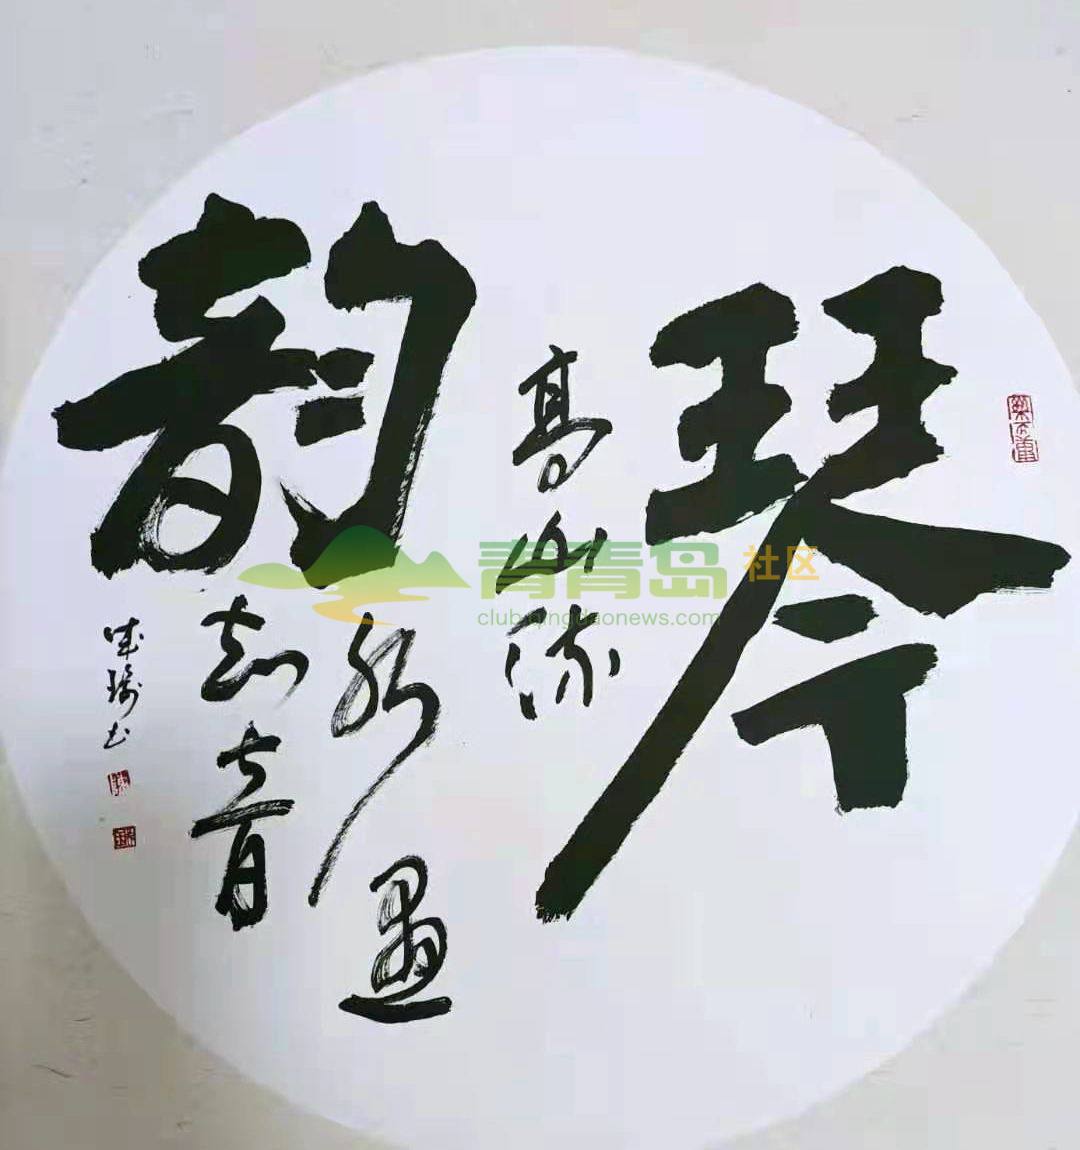 琴韵
高山流
水遇
知音
成瑜书
青青岛社区
club.qingdaonews.com